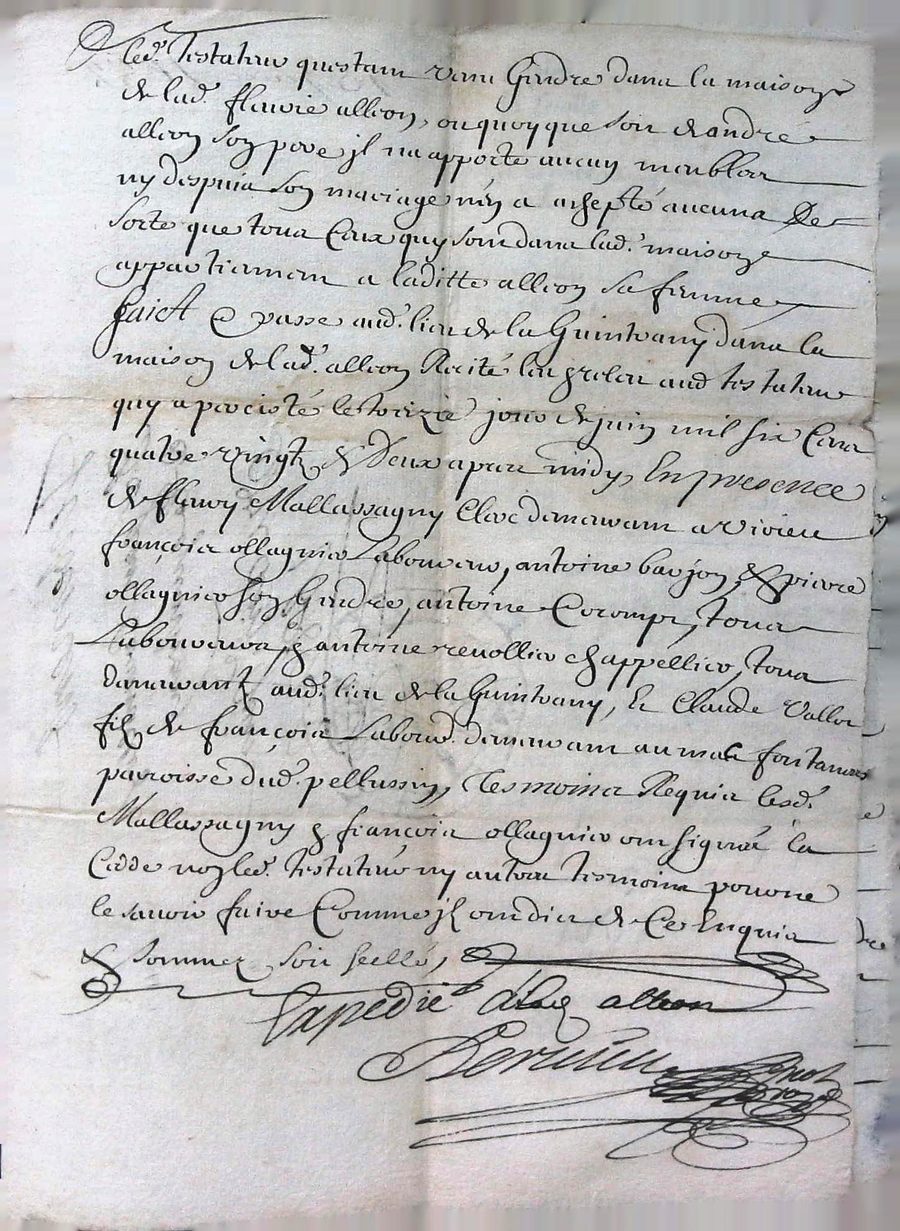 led. testateur questant venu Gindre dans la maison
de lad. fleurie alleon, ou quoy que soit d'andré
alleon son pere jl na apporté aucuns meubles
ny despuis son mariage n'en a achepté aucuns De
sorte que tous Ceux quy sont dans lad. maison
appartiennent a laditte alleon sa femme
faict & passé aud. lieu de la Guintrany dans la
maison de lad. alleon Recité leu & releu aud testateur
quy a percisté le treizie jour de juin mil six Cens
quatre vingtz & Deux apres midy, En presence
de fleury Mallassagny Clerc demeurant a virieu
françois ollagnier Laboureur, antoine barjon, & pierre
ollagnier son Gendre, antoine Corompt, tous
Laboureurs, & antoine revollier chappellier, tous
demeurantz aud. lieu de la Guintrany, & Claude Vallos
filz de françois Labour. demeurant au mas fontanes
parroisse dud. pellussin, Tesmoins Requis lesd.
Mallassagny & françois ollagnier ont signés la
Cedde non led. testateur ny autres tesmoins pour ne
le savoir faire Comme jl ont dict de Ce Enquis
& sommez soit scellé,
Expedié alad alleon